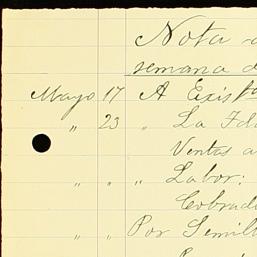 Nota
semana d
Mayo 17 A Exist
" 23 " La
Ventas a
" " " Labor:
Cobrad
" " Por Semill